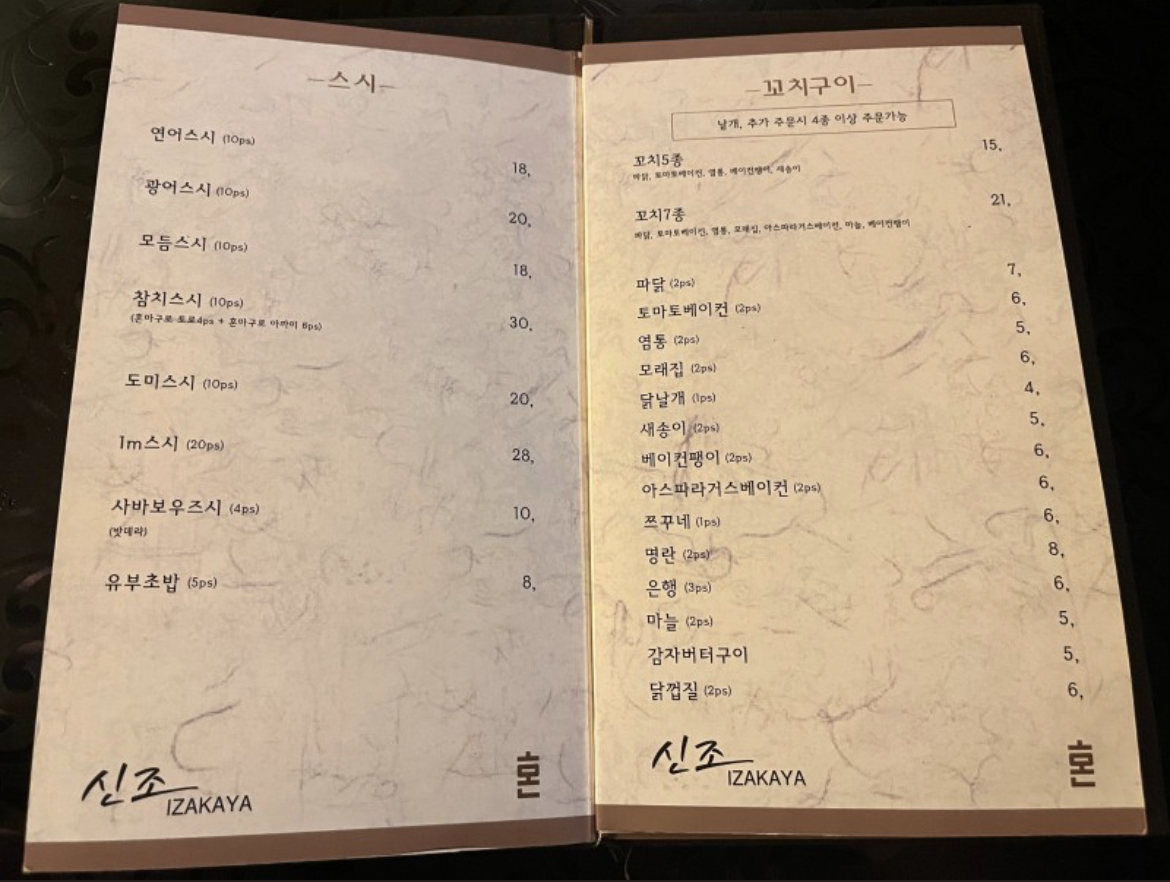 스시
연어스시 (10ps) 18,
광어스시 (10ps) 20,
모듬스시 (10ps) 18,
참치스시 (10ps) 30,
(혼마구로 토로4ps + 혼마구로 아까미 6ps)
도미스시 (10ps) 20,
1m스시 (20ps) 28,
사바보우즈시 (4ps) 10,
(밧데라)
유부초밥 (5ps) 8,
신조
IZAKAYA
혼
꼬치구이
낱개, 추가 주문시 4종 이상 주문가능
꼬치5종 15,
파닭, 토마토베이컨, 염통, 베이컨팽이, 새송이
꼬치7종 21,
파닭, 토마토베이컨, 염통, 모래집, 아스파라거스베이컨, 마늘, 베이컨팽이
파닭 (2ps) 7,
토마토베이컨 (2ps) 6,
염통 (2ps) 5,
모래집 (2ps) 6,
닭날개 (1ps) 4,
새송이 (2ps) 5,
베이컨팽이 (2ps) 6,
아스파라거스베이컨 (2ps) 6,
쯔꾸네 (1ps) 6,
명란 (2ps) 8,
은행 (3ps) 6,
마늘 (2ps) 5,
감자버터구이 5,
닭껍질 (2ps) 6,
신조
IZAKAYA
혼